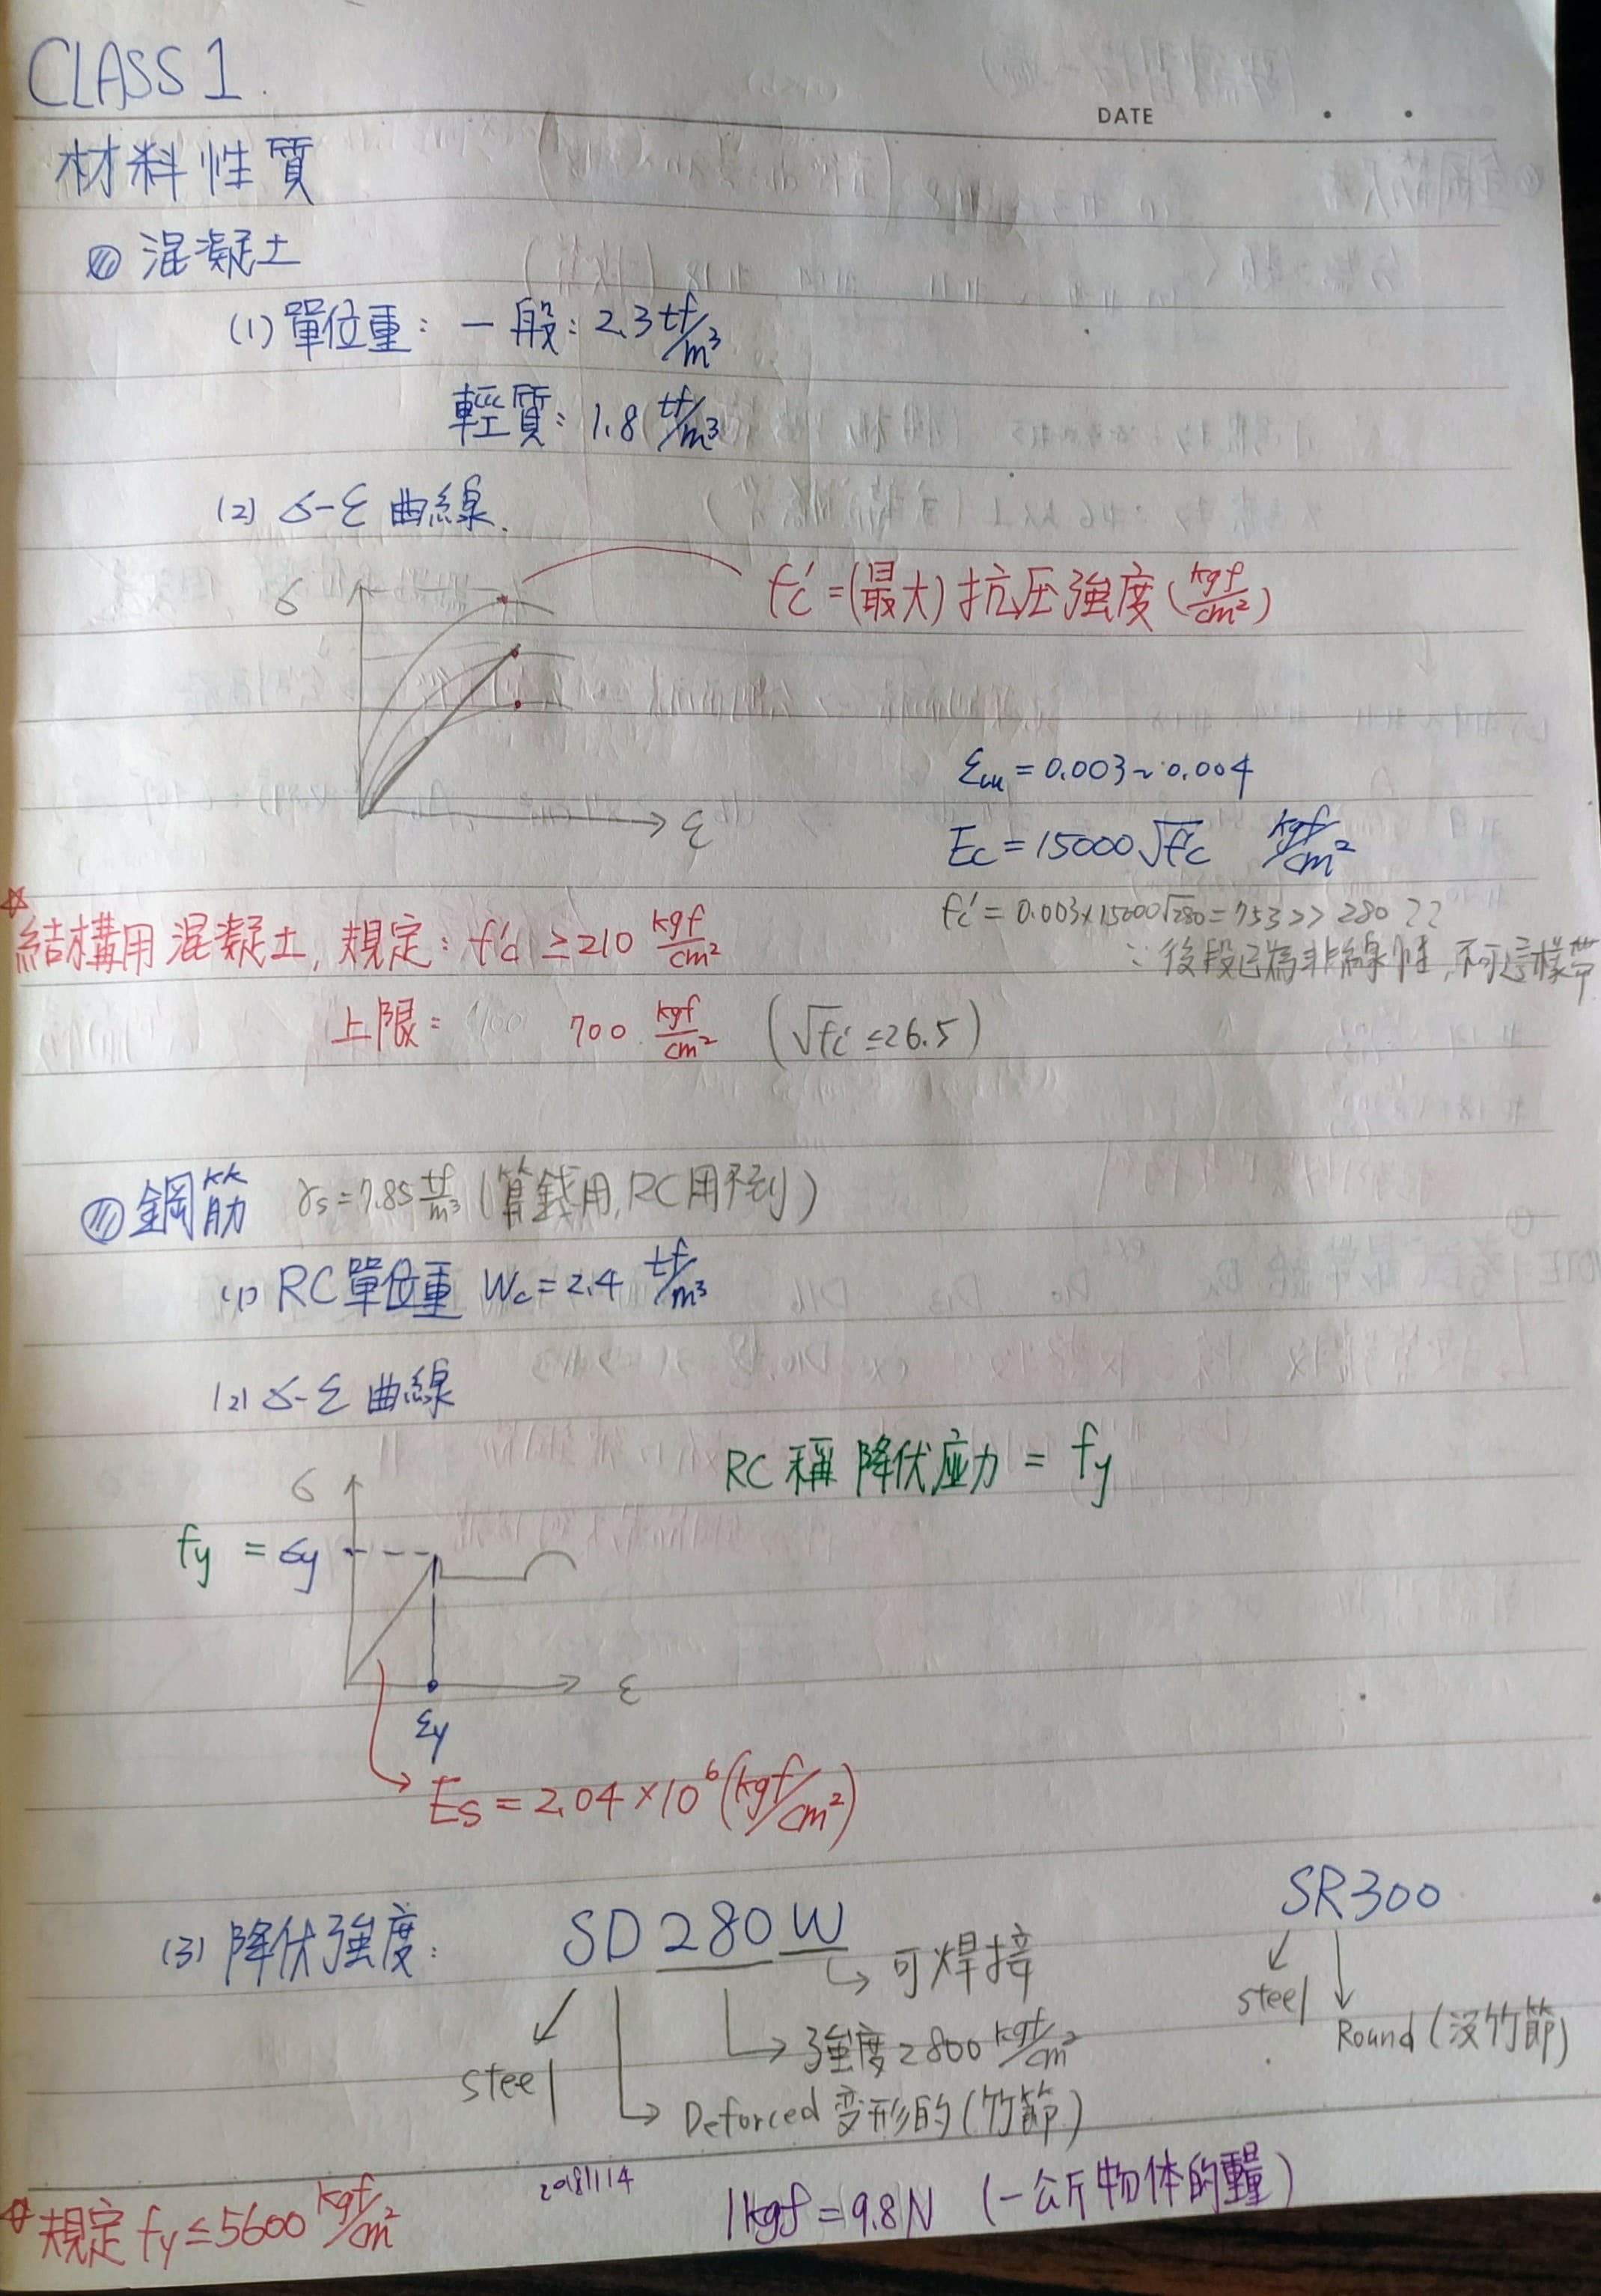 CLASS 1.
DATE
材料性質
混凝土
(1) 單位重: 一般: 2.3 tf/m³
輕質: 1.8 tf/m³
(2) σ-ε 曲線.
σ
fc' = (最大) 抗压強度 (kgf/cm²)
ε
εcu = 0.003~0.004
Ec = 15000√fc' kgf/cm²
fc' = 0.003×15000√280 = 753 >> 280 ??
∵後段已為非線性, 不可這樣帶
結構用混凝土, 規定: fc' ≥ 210 kgf/cm²
上限: 700 kgf/cm² (√fc' ≤ 26.5)
鋼筋 γs = 7.85 tf/m³ (算錢用, RC用不到)
(1) RC單位重 Wc = 2.4 tf/m³
(2) σ-ε 曲線
RC 稱 降伏应力 = fy
σ
fy = σy
ε
εy
Es = 2.04 × 10⁶ (kgf/cm²)
(3) 降伏強度: SD280W
可焊接
強度2800 kgf/cm²
steel
Deforced 变形的 (竹節)
SR300
steel
Round (沒竹節)
20181114
1kgf = 9.8N (一公斤物体的重量)
規定 fy ≤ 5600 kgf/cm²